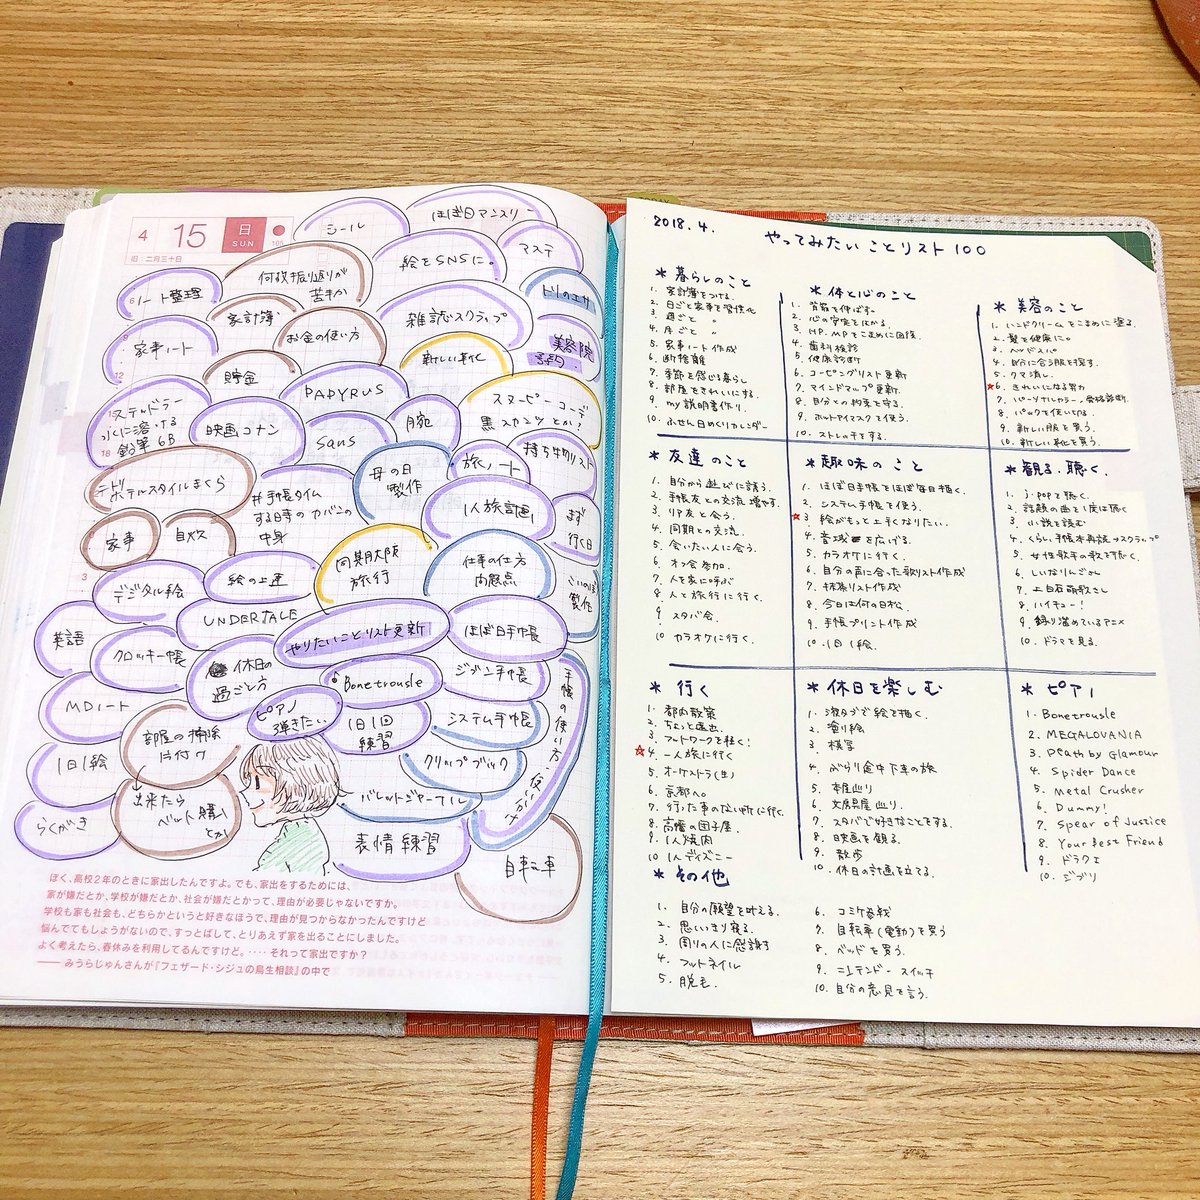 4 15 日 SUN
旧:二月三十日
シール
ほぼ日マンスリー
ノート整理
何故振り返りが
苦手か
絵をSNSに。
マステ
トリのエサ
家計簿
お金の使い方
雑誌スクラップ
美容院
予約.
家事ノート
貯金
PAPYRUS
新しい靴
スヌーピーコーデ
黒スカンツとか?
ステッドラー
水に溶ける
鉛筆 6B
映画コナン
Sans
腕
旅ノート
持ち物リスト
ホテルスタイルまくら
#手帳タイム
する時のカバンの
中身
母の日
製作
1人旅計画
まず
行く日
家事
自炊
絵の上達
同期大阪
旅行
仕事の仕方
問題点
こいのぼり
製作
デジタル絵
UNDERTALE
英語
クロッキー帳
休日の
過ごし方
やりたいことリスト更新
ほぼ日手帳
Bonetrousle
ジブン手帳
MDノート
ピアノ
弾きたい
1日1回
練習
システム手帳
手帳の使い方、使い分け
部屋の掃除
片付け
1日1絵
クリップブック
出来たら
ベット購入
とか
らくがき
バレットジャーナル
表情練習
自転車
ぼく、高校2年のときに家出したんですよ。でも、家出をするためには、
家が嫌だとか、学校が嫌だとか、社会が嫌だとかって、理由が必要じゃないですか。
学校も家も社会も、どちらかというと好きなほうで、理由が見つからなかったんですけど
悩んでてもしょうがないので、すっとばして、とりあえず家を出ることにしました。
よく考えたら、春休みを利用してるんですけど。‥‥それって家出ですか?
——みうらじゅんさんが『フェザード・シジュの鳥生相談』の中で
2018.4. やってみたいことリスト100
* 暮らしのこと
1. 家計簿をつける.
2. 日ごと家事を習慣化
3. 週ごと 〃
4. 月ごと 〃
5. 家事ノート作成
6. 断捨離
7. 季節を感じる暮らし
8. 部屋をきれいにする.
9. my説明書作り.
10. ふせん日めくりカレンダー.
* 体と心のこと
1. 背筋を伸ばす。
2. 心の安定をはかる.
3. HP、MPをこまめに回復.
4. 歯科検診
5. 健康診断
6. コーピングリスト更新
7. マインドマップ更新.
8. 自分との約束を守る.
9. ホットアイマスクを使う.
10. ストレッチをする.
* 美容のこと
1. ハンドクリームをこまめに塗る.
2. 髪を健康に。
3. ヘッドスパ
4. 自分に合う服を探す.
5. クマ消し.
6. きれいになる努力
7. パーソナルカラー, 骨格診断.
8. パックを使いきる.
9. 新しい服を買う.
10. 新しい靴を買う.
* 友達のこと
1. 自分から遊びに誘う.
2. 手帳友との交流増やす.
3. リア友と会う.
4. 同期との交流.
5. 会いたい人に会う.
6. オフ会参加.
7. 人を家に呼ぶ
8. 人と旅行に行く.
9. スタバ会.
10. カラオケに行く.
* 趣味のこと
1. ほぼ日手帳をほぼ毎日描く.
2. システム手帳を使う.
3. 絵がもっと上手くなりたい.
4. 音域を広げる.
5. カラオケに行く.
6. 自分の声に合った歌リスト作成
7. 抹茶リスト作成
8. 今日は何の日松
9. 手帳プリント作成
10. 1日1絵.
* 観る、聴く.
1. J-popを聴く.
2. 話題の曲を1度は聴く
3. 小説を読む
4. くらし手帳本再読→スクラップ
5. 女性歌手の歌を聴く.
6. しいなりんごさん
7. 上白石萌歌さん
8. ハイキュー!
9. 録り溜めているアニメ
10. ドラマを見る.
* 行く
1. 都内散策
2. ちょっと遠出.
3. フットワークを軽く!
4. 一人旅に行く
5. オーケストラ(生)
6. 京都へ。
7. 行った事のない所に行く.
8. 高幡の団子屋.
9. 1人焼肉
10. 1人ディズニー
* 休日を楽しむ
1. 液タブで絵を描く.
2. 塗り絵
3. 模写
4. ぶらり途中下車の旅
5. 本屋巡り
6. 文房具屋巡り.
7. スタバで好きなことをする.
8. 映画を観る.
9. 散歩
10. 休日の計画を立てる.
* ピアノ
1. Bonetrousle
2. MEGALOVANIA
3. Death by Glamour
4. Spider Dance
5. Metal Crusher
6. Dummy!
7. Spear of Justice
8. Your Best Friend
9. ドラクエ
10. ジブリ
* その他
1. 自分の願望を叶える.
2. 思いきり寝る.
3. 周りの人に感謝す
4. フットネイル
5. 脱毛.
6. コミケ参戦
7. 自転車(電動)を買う
8. ベッドを買う.
9. ニンテンドースイッチ
10. 自分の意見を言う.